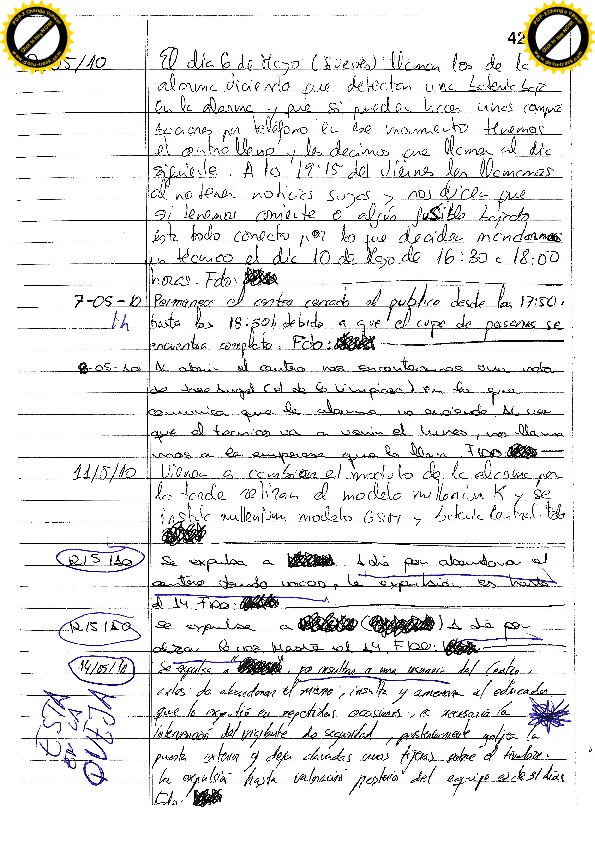 42
05/10 El día 6 de Mayo (Jueves) llaman los de la
alarma diciendo que detectan una batería baja
en la alarma y que si pueden hacer unas compro
baciones por teléfono en ese momento tenemos
el centro lleno y les decimos que llamen al día
siguiente. A las 19:15 del viernes les llamamos
al no tener noticias suyas y nos dicen que
si tenemos corriente o algún fusible bajado
está todo conecto por lo que deciden mandarnos
un técnico el día 10 de Mayo de 16:30 a 18:00
horas. Fdo:
7-05-10 Permanece el centro cerrado al publico desde las 17:50h
1h hasta las 18:50h debido a que el cupo de personas se
encuentra completo. Fdo:
8-05-10 Al abrir el centro nos encontramos una nota
de (el de la limpieza) en la que
comunica que la alarma va avisando. Al ver
que el tecnico va a venir el lunes, no llama
mos a la empresa que lo lleva. Fdo
11/5/10 Vienen a cambiar el modulo de la alarma por
la tarde retiran el modelo millenium K y se
instala millenium modelo GSM y batería Central. Fdo
12/5/10 Se expulsa a 1 día por abandonar el
centro dando voces, la expulsión es hasta
el 14. Fdo:
12/5/10 Se expulsa a ( ) 1 día por
hasta el 14. Fdo:
14/05/10 Se expulsa a " ", por insultar a una usuaria del Centro,
antes de abandonar el mismo, insulta y amenaza al educador
que lo expulsó en repetidas ocasiones, es necesaria la
intervención del vigilante de seguridad, posteriormente golpea la
puerta exterior y deja clavadas unas tijeras sobre el timbre.
la expulsión hasta valoración posterior del equipo es de 31 días
Fdo:
ESTA
EN LA
QUEJA